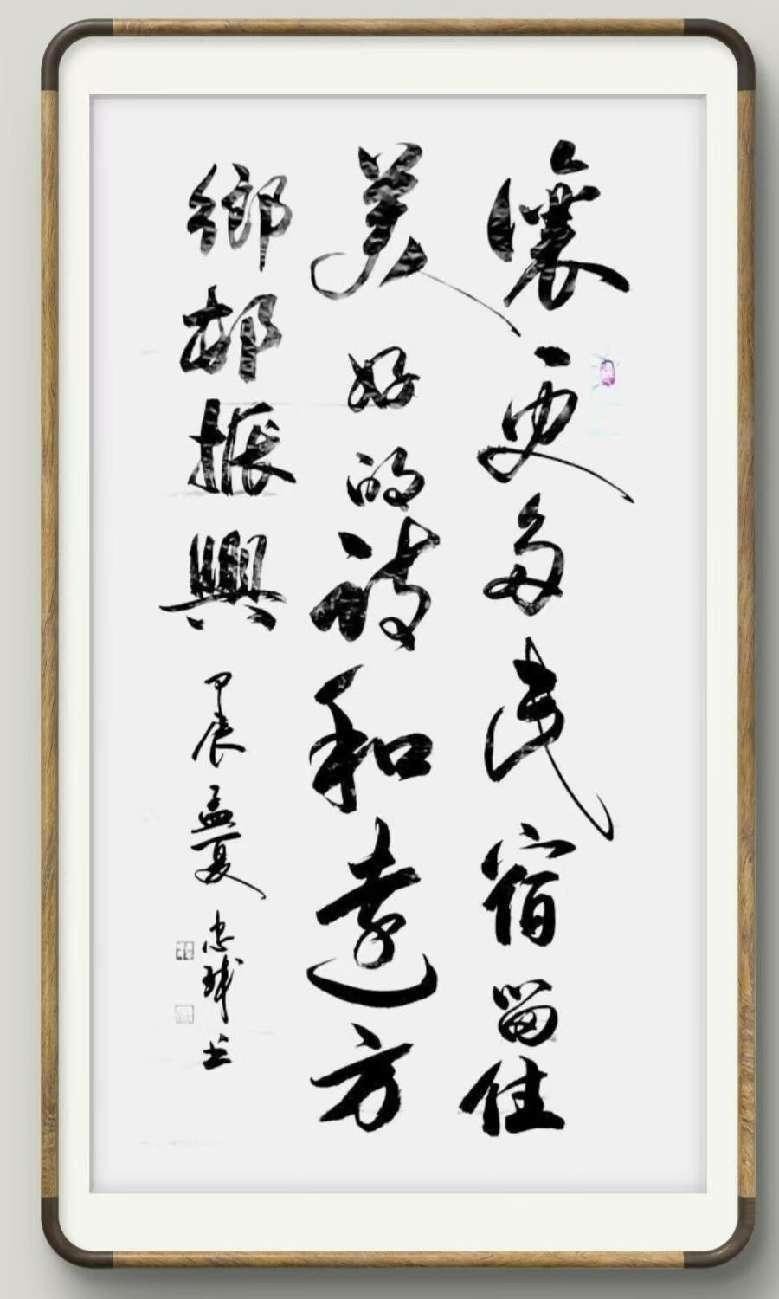 讓更多民宿留住
美好的詩和遠方
鄉邨振興 甲辰孟夏忠球书